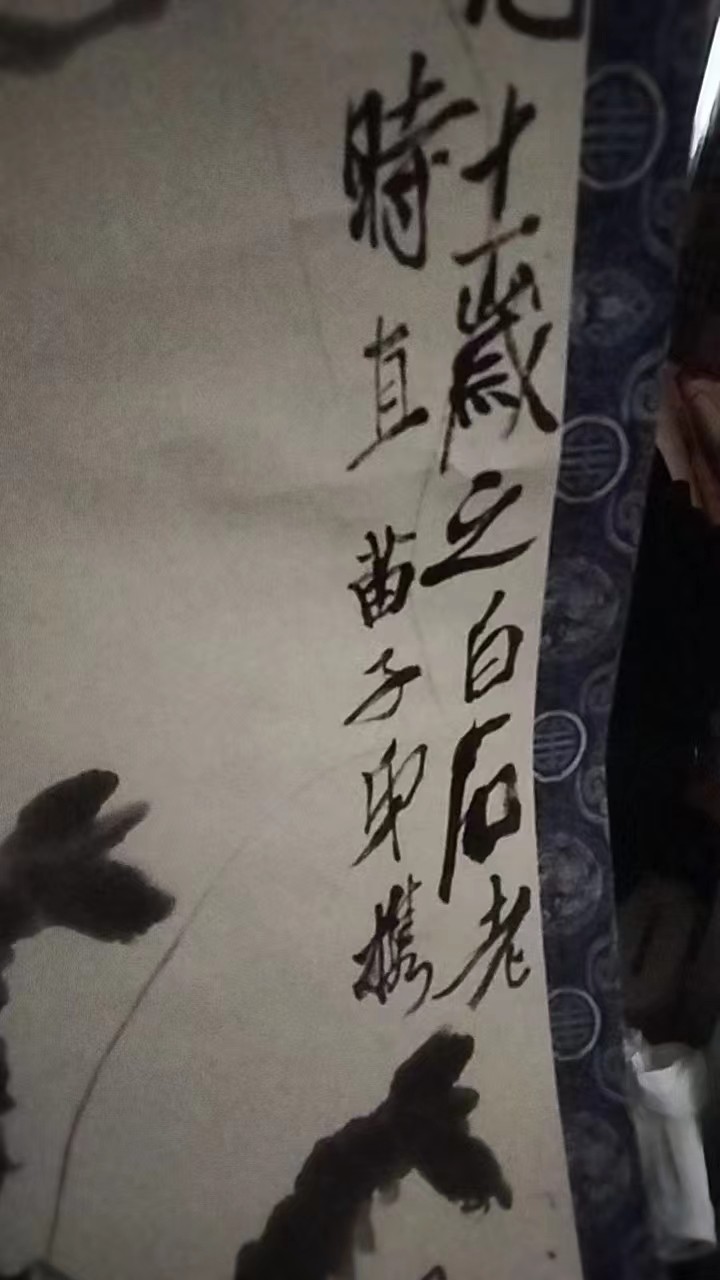 十歲之白石老
時直苗子兄攜